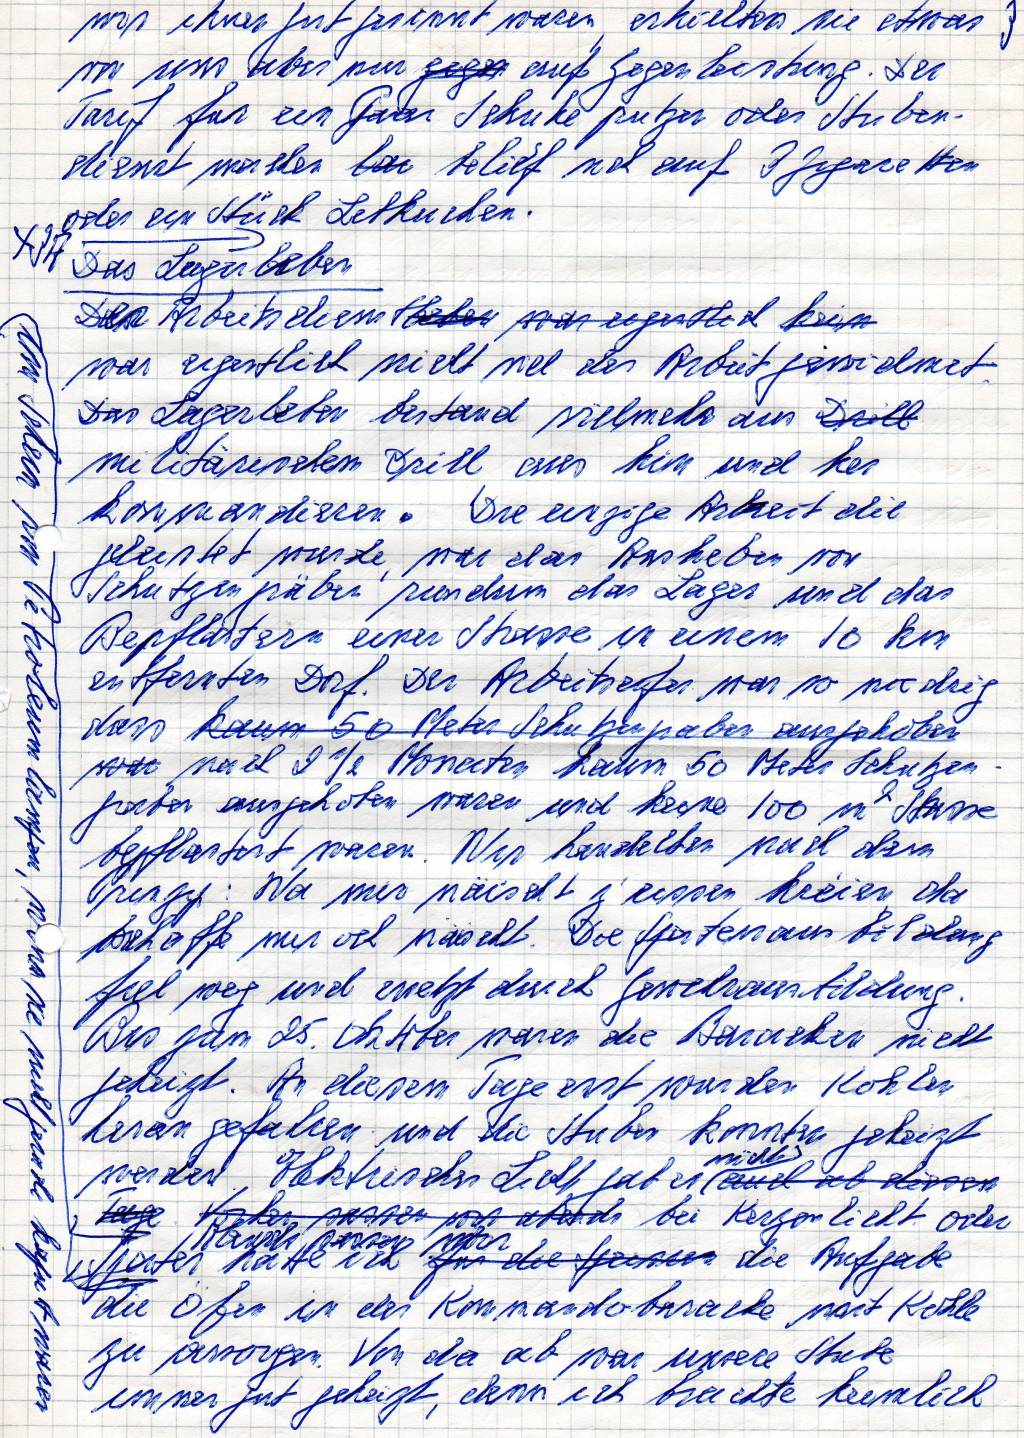 wir ihnen gut gesinnt waren, erhielten sie etwas
von uns aber nur gegen auf Gegenleistung. Der
Tarif für ein Paar Schuhe putzen oder Stuben-
dienst machen belief sich auf 3 Zigaretten
oder ein Stück Lebkuchen.
Das Lagerleben
Der Arbeitsdienst war eigentlich kein
war eigentlich nicht viel der Arbeit gewidmet.
Das Lagerleben bestand vielmehr aus Drill
militärischem Drill aus hin und her
kommandieren. Die einzige Arbeit die
geleistet wurde, war das Ausheben von
Schutzengräben rundum das Lager und das
Bepflastern einer Strasse in einem 10 km
entfernten Dorf. Der Arbeitseifer war so niedrig
dass kaum 50 Meter Schutzengraben ausgehoben
war nach 2 1/2 Monaten kaum 50 Meter Schutzen-
gräber ausgehoben waren und keine 100 m² Strasse
bepflastert waren. Wir handelten nach dem
Prinzip: Wa mir näischt z'iessen kréien da
schaffe mir och näischt. Die Spatenausbildung
fiel weg und ersetzt durch Gewehrausbildung.
Bis zum 25. Oktober waren die Baracken nicht
geheizt. An diesem Tage erst wurden Kohlen
herangefahren und die Stuben konnten geheizt
werden. Elektrisches Licht gab es nicht auch ab diesem
Tage. bei Kerzenlicht oder
Später hatte ich die Aufgabe
die Öfen in der Kommandobaracke mit Kohle
zu versorgen. Von da ab war unsere Stube
immer gut geheizt, denn ich brachte heimlich